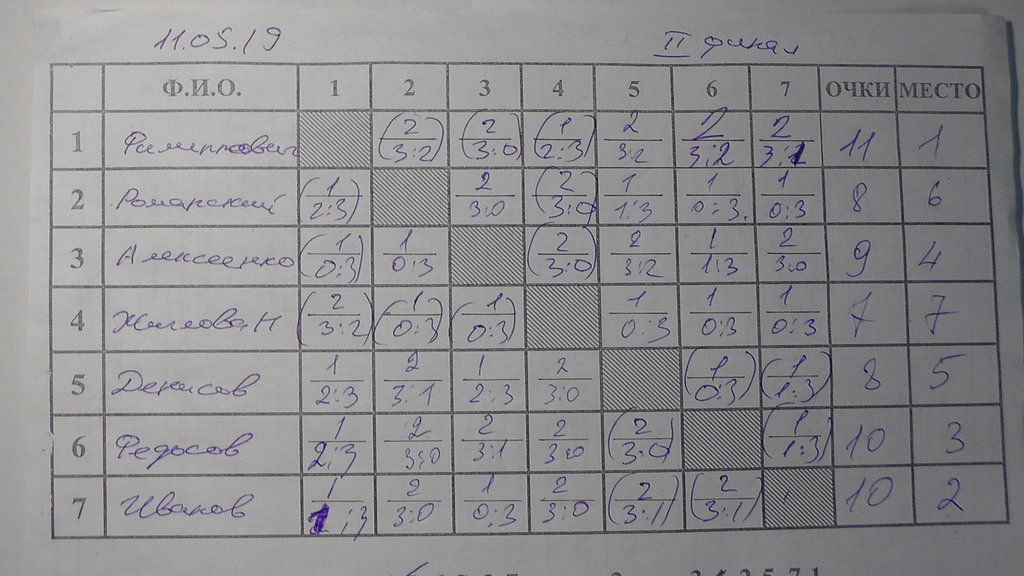 11.05.19 II финал
Ф.И.О. 1 2 3 4 5 6 7 ОЧКИ МЕСТО
1 Филиппович (2 3:2) (2 3:0) (1 2:3) 2 3:2 2 3:2 2 3:1 11 1
2 Романский (1 2:3) 2 3:0 (2 3:0) 1 1:3 1 0:3. 1 0:3 8 6
3 Алексеенко (1 0:3) 1 0:3 (2 3:0) 2 3:2 1 1:3 2 3:0 9 4
4 (2 3:2) (1 0:3) (1 0:3) 1 0:3 1 0:3 1 0:3 7 7
5 Денисов 1 2:3 2 3:1 1 2:3 2 3:0 (1 0:3) (1 1:3) 8 5
6 Федосов 1 2:3 2 3:0 2 3:1 2 3:0 (2 3:0) (1 1:3) 10 3
7 Иванов 1 1:3 2 3:0 1 0:3 2 3:0 (2 3:1) (2 3:1) 10 2